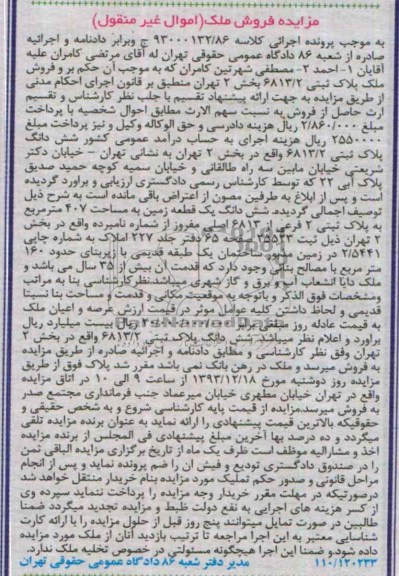 مزایده فروش ملک(اموال غیر منقول)
به موجب پرونده اجرائی کلاسه ۹۳۰۰۰۱۳۲/۸۶ ج وبرابر دادنامه و اجرائیه
صادره از شعبه ۸۶ دادگاه عمومی حقوقی تهران له آقای مرتضی کامران علیه
آقایان ۱- احمد ۲- مصطفی شهرتین کامران که به موجب آن حکم بر و فروش
ملک پلاک ثبتی ۶۸۱۳/۲ بخش ۲ تهران منطبق بر قانون اجرای احکام مدنی
از طریق مزایده به جهت ارائه پیشنهاد تقسیم با جلب نظر کارشناس و تقسیم
ارث حاصل از فروش به نسبت سهم الارث مطابق احوال شخصیه با پرداخت
مبلغ ۲/۸۶۰/۰۰۰ ریال هزینه دادرسی و حق الوکاله وکیل و نیز پرداخت مبلغ
۲۵۵۰۰۰۰ ریال هزینه اجرای به حساب درآمد عمومی کشور شش دانگ
پلاک ثبتی ۶۸۱۳/۲ واقع در بخش ۲ تهران به نشانی تهران – خیابان دکتر
شریعتی خیابان مابین سه راه طالقانی و خیابان سمیه کوچه حمید صدیق
پلاک آبی ۲۲ که توسط کارشناس رسمی دادگستری ارزیابی و برآورد گردیده
است و پس از ابلاغ به طرفین مصون از اعتراض باقی مانده است به شرح ذیل
توصیف اجمالی گردیده. شش دانگ یک قطعه زمین به مساحت ۴۰۷ مترمربع
به پلاک ثبتی ۲ فرعی از ۶۸۱۳ اصلی مفروز از شماره نامبرده واقع در بخش
۲ تهران ذیل ثبت صفحه ۶۵ دفتر جلد ۲۲۷ املاک به شماره چاپی
۲/۵۴۴۱ در زمین مزبور ساختمان یک طبقه قدیمی با زیربنای حدود ۱۶۰
متر مربع با مصالح بنائی وجود دارد که قدمت آن بیش از ۳۵ سال می باشد و
ملک دایا انشعاب آب و برق و گاز شهری میباشد.نظر کارشناسی بنا به مراتب
ومشخصات فوق الذکر و باتوجه به موقعیت مکانی و قدمت و مساحت بنا نسبتا
قدیمی و لحاظ داشتن کلیه عوامل موثر در قیمت ارزش عرصه و اعیان ملک
به قیمت عادله روز مبلغ بیست میلیارد ریال
برآورد و اعلام نظر میباشد. شش دانگ پلاک ثبتی ۶۸۱۳/۲ واقع در بخش ۲
تهران وفق نظر کارشناسی و مطابق دادنامه و اجرائیه صادره از طریق مزایده
به فروش میرسد و ملک در رهن بانک نمی باشد مقرر شد پلاک فوق از طریق
مزایده روز دوشنبه مورخ ۱۳۹۳/۱۲/۱۸ از ساعت ۹ الی ۱۰ در اتاق مزایده
واقع در تهران خیابان مطهری خیابان میرعماد جنب فرمانداری مجتمع صدر
به فروش میرسد.مزایده از قیمت پایه کارشناسی شروع و به شخص حقیقی و
حقوقیکه بالاترین قیمت پیشنهادی را ارائه نماید به عنوان برنده مزایده تلقی
میگردد و ده درصد بها آخرین مبلغ پیشنهادی فی المجلس از برنده مزایده
اخذ و مشارالیه موظف است ظرف یک ماه از تاریخ برگزاری مزایده الباقی ثمن
را در صندوق دادگستری تودیع و فیش آن را ضم پرونده نماید و پس از انجام
مراحل قانونی و صدور حکم تملیک مورد مزایده بنام خریدار منتقل خواهد شد
درصورتیکه در مهلت مقرر خریدار وجه مزایده را پرداخت ننماید سپرده وی
از کسر هزینه های اجرایی به نفع دولت ظبط و مزایده تجدید میگردد ضمنا
طالبین در صورت تمایل میتوانند پنج روز قبل از حلول مزایده را با ارائه کارت
شناسایی معتبر به این اجرا مراجعه تا ترتیب بازدید آتان از ملک مورد مزایده
داده شود.و ضمنا این اجرا هیچگونه مسئولتی در خصوص تخلیه ملک ندارد.
۱۱۰/۱۲۰۲۳۳ مدیر دفتر شعبه ۸۶ دادگاه عمومی حقوقی تهران